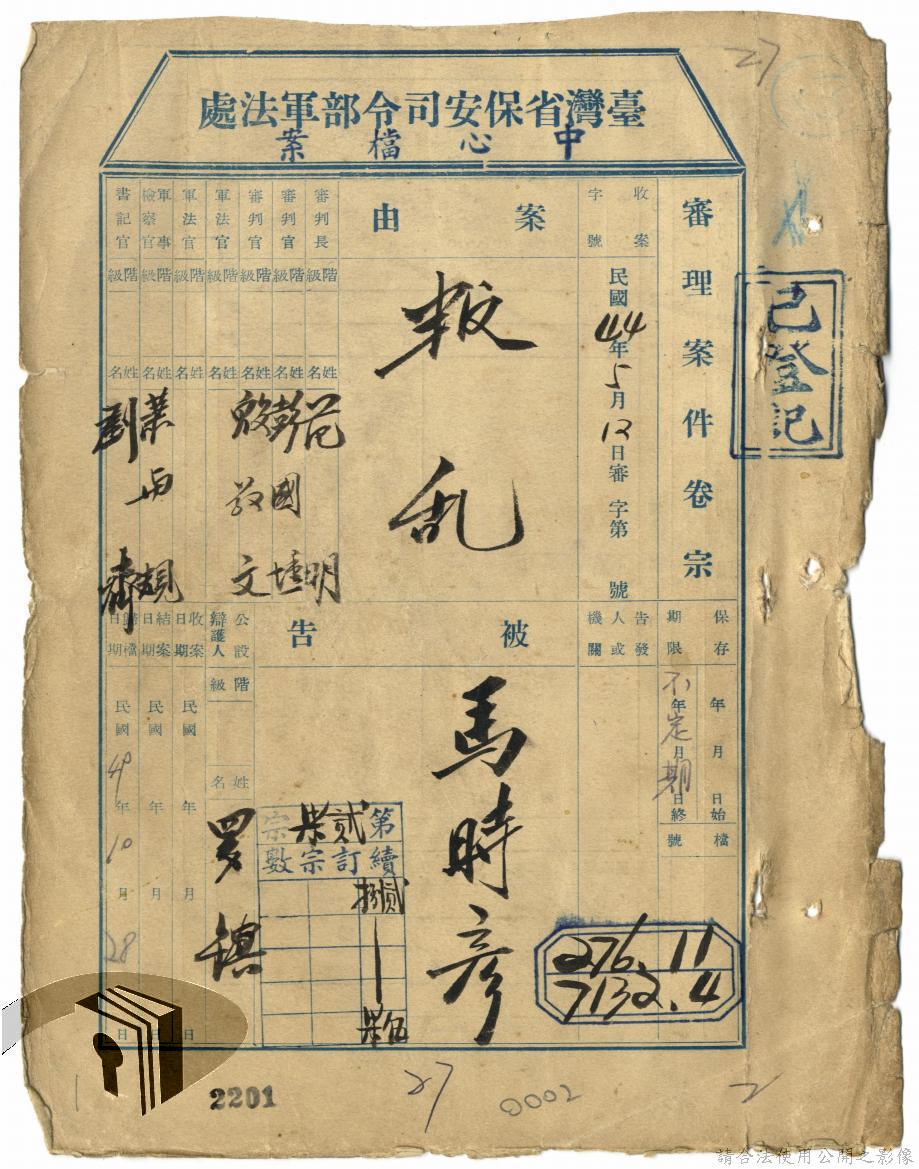 臺灣省保安司令部軍法處
中心檔案
審理案件卷宗
收案字號
民國44年5月12日審字第 號
案由
叛乱
審判長
階級
姓名
審判官
階級
姓名
彭國壎
審判官
階級
姓名
殷敬文
軍法官
階級
姓名
軍法官
階級
姓名
軍事檢察官
階級
姓名
書記官
階級
姓名
保存期限
年 月 日始
不定期
年 月 日終
檔號
276.11
7132.4
告發人或機關
被告
馬時彥
公設辯護人
階級
姓名
羅鎮
收案日期
民國 年 月 日
結案日期
民國 年 月 日
歸檔日期
民國49年10月28日
第貳柒宗
續訂宗數
貳捌
|
伍柒
已登記
27
2201
27
0002
2
請合法使用公開之影像